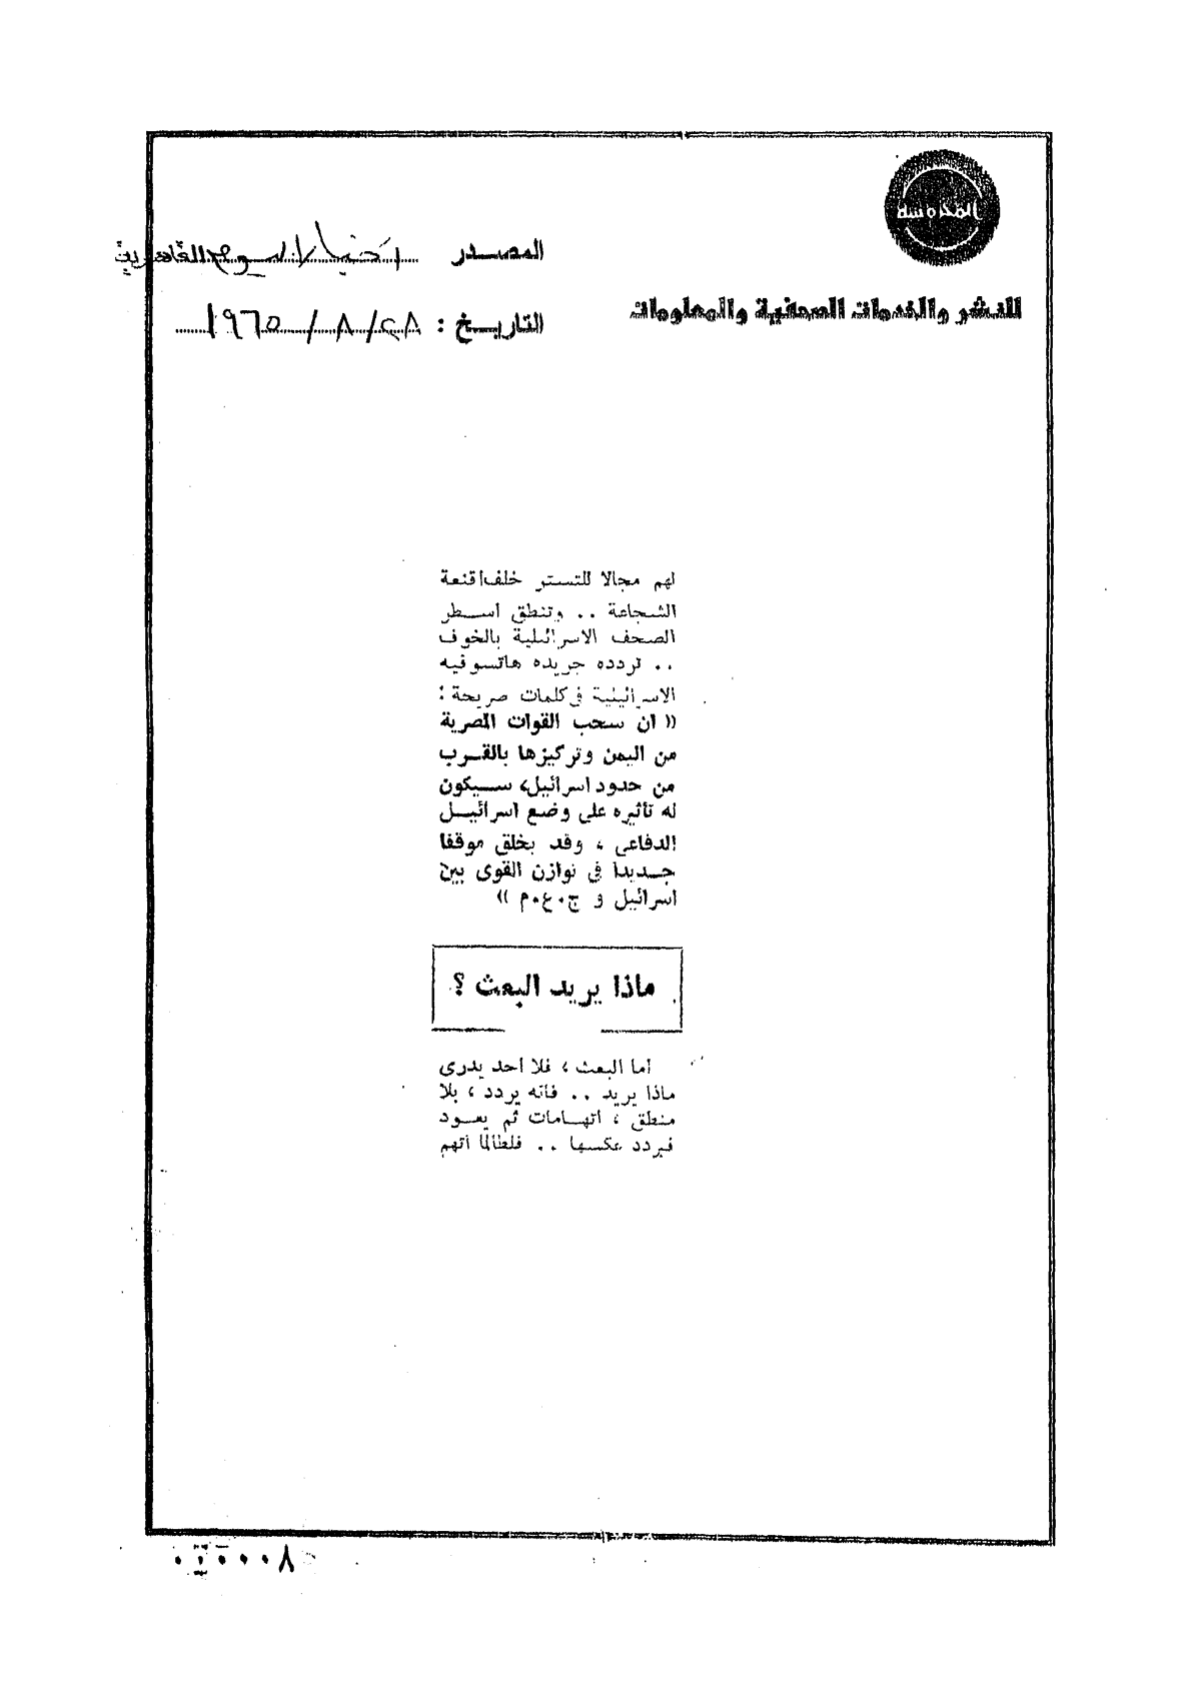 المحروسة
للنشر والخدمات الصحفية والمعلومات
المصدر اخبار اليوم القاهرية
التاريخ : ٢٨/ ٨/ ١٩٦٥
لهم مجالا للتستر خلف اقنعة
الشجاعة .. وتنطق اسطر
الصحف الاسرائيلية بالخوف
.. تردده جريده هاتسوفيه
الاسرائيلية فى كلمات صريحة :
(( ان سحب القوات المصرية
من اليمن وتركيزها بالقرب
من حدود اسرائيل، سيكون
له تأثيره على وضع اسرائيل
الدفاعى ، وقد يخلق موقفا
جديدا فى توازن القوى بين
اسرائيل و ج.ع.م ))
ماذا يريد البعث ؟
أما البعث ، فلا أحد يدرى
ماذا يريد .. فانه يردد ، بلا
منطق ، اتهامات ثم يعود
فيردد عكسها .. فلطالما اتهم